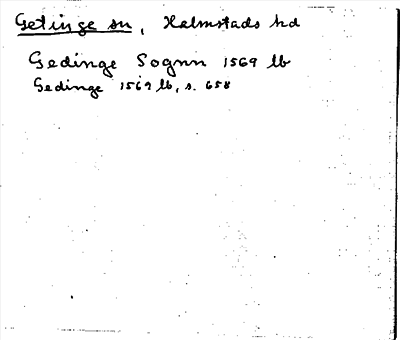 Getinge sn, Halmstads hd
Gedinge Sognn 1569 lb
Gedinge 1569 lb, s. 658